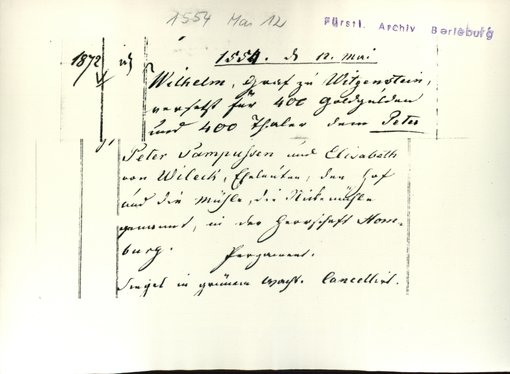 1554 Mai 12
Fürstl. Archiv Berleburg
1872
1554. d 12. Mai
Wilhelm, Graf zu Witgenstein,
versetzt für 400 Goldgulden
und 400 Thaler dem Peter
Peter Pampussen und Elisabeth
von Wileck, Eheleuten, den Hof
und die Mühle, die Nickemühle
genannt, in der Herrschaft Hom-
burg. Pergament.
Siegel in grünem Wachs. Cancellirt.